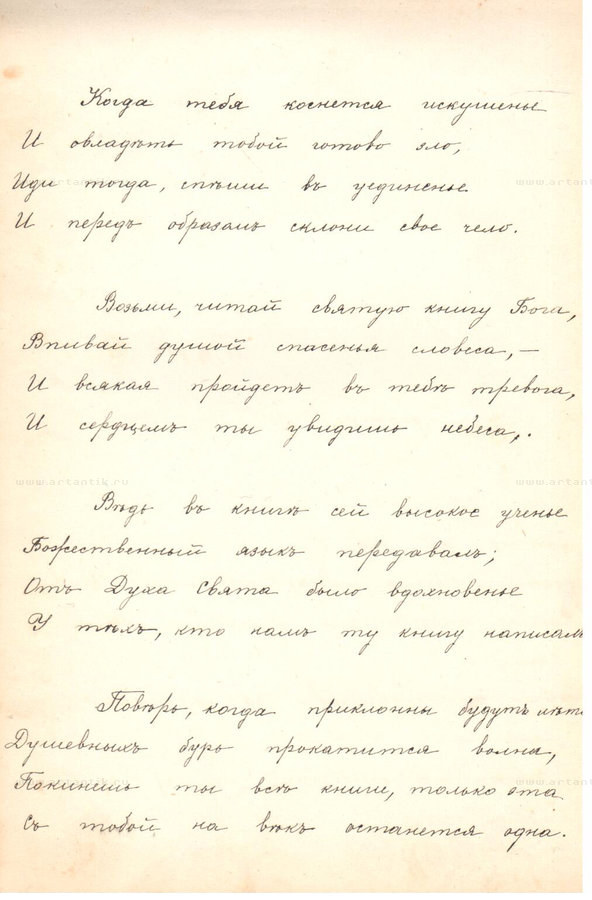 Когда тебя коснется искушенье
И овладѣть тобой готово зло,
Иди тогда, спѣши въ уединенье
И передъ образомъ склони свое чело.
Возьми, читай святую книгу Бога,
Впивай душой спасенья словеса, —
И всякая пройдетъ въ тебѣ тревога,
И сердцемъ ты увидишь небеса,.
Вѣдь въ книгѣ сей высокое ученье
Божественный языкъ передавалъ;
Отъ Духа Свята было вдохновенье
У тѣхъ, кто намъ ту книгу написалъ
Повѣрь, когда приклонны будутъ лѣта
Душевныхъ бурь прокатится волна,
Покинешь ты всѣ книги, только эта
Съ тобой на вѣкъ останется одна.
www.artantik.ru
www.artantik.ru